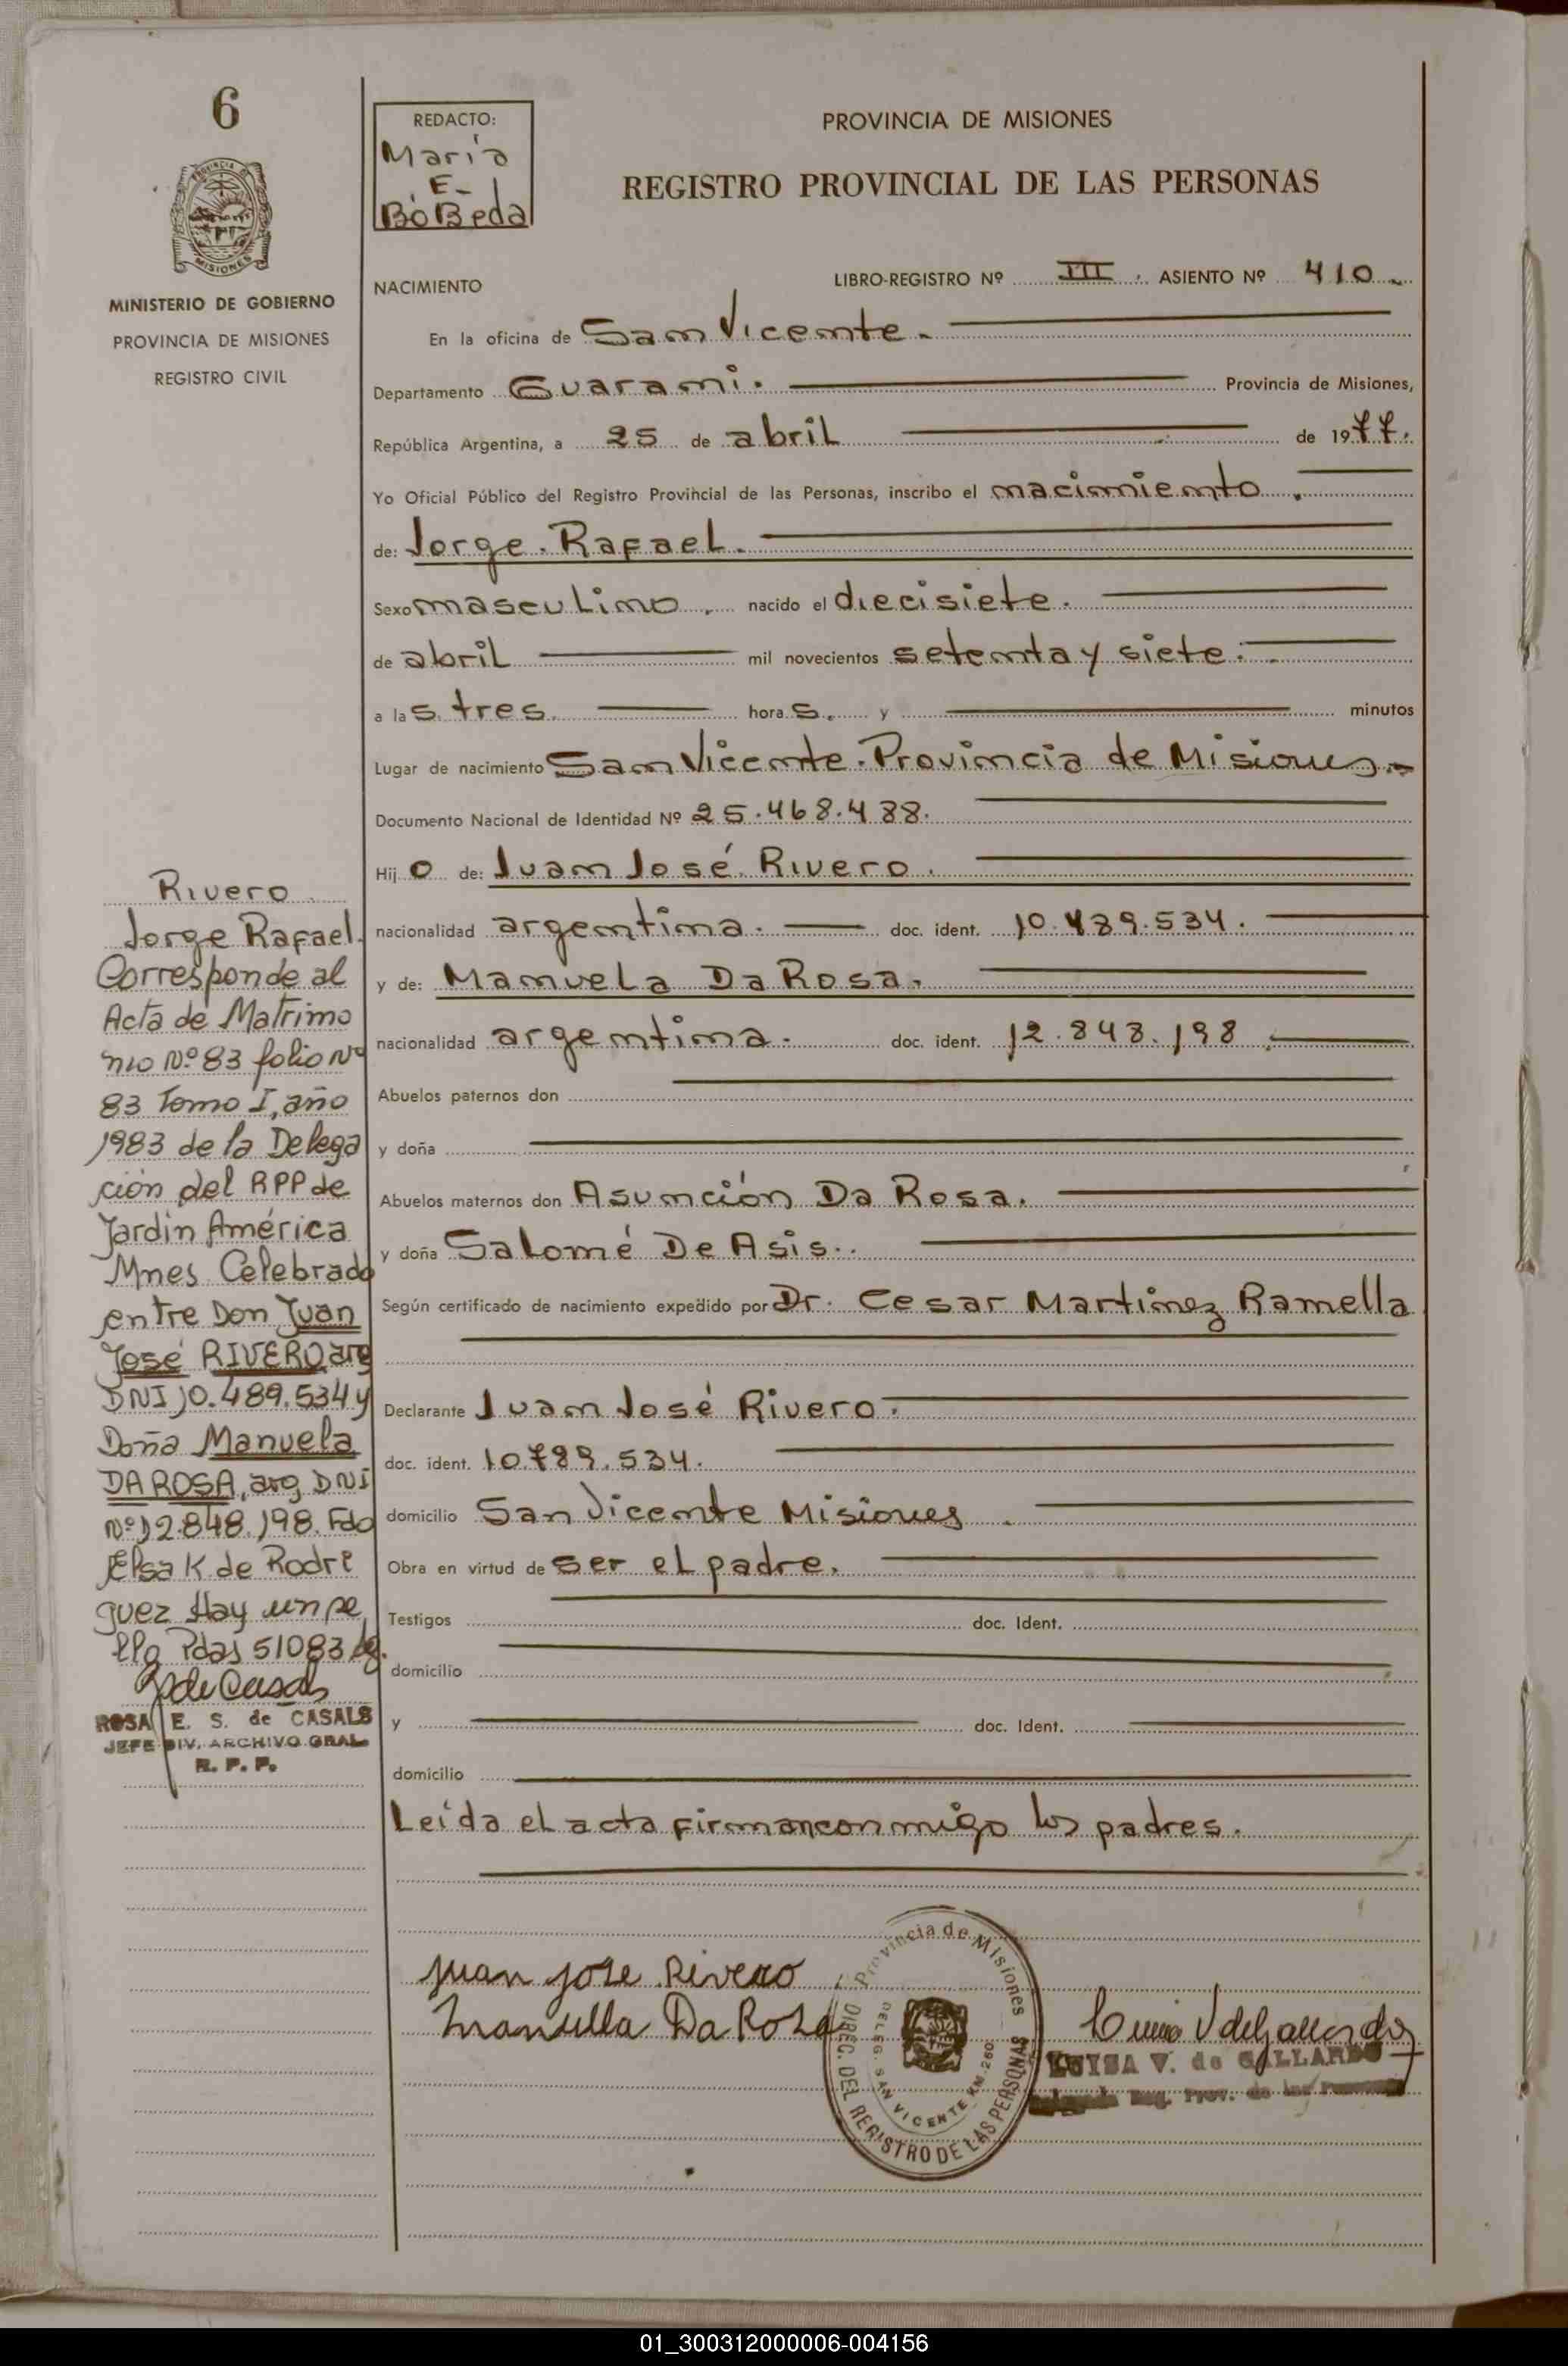 6
MINISTERIO DE GOBIERNO
PROVINCIA DE MISIONES
REGISTRO CIVIL
REDACTO:
María
E-
BóBeda
PROVINCIA DE MISIONES
REGISTRO PROVINCIAL DE LAS PERSONAS
NACIMIENTO
LIBRO-REGISTRO Nº III. ASIENTO Nº 410
En la oficina de San Vicente.
Departamento Guarani. Provincia de Misiones,
República Argentina, a 25 de abril de 1977.
Yo Oficial Público del Registro Provincial de las Personas, inscribo el nacimiento.
de: Jorge. Rafael.
Sexo masculino. nacido el diecisiete.
de abril mil novecientos setenta y siete.
a las tres. horas. y minutos
Lugar de nacimiento San Vicente. Provincia de Misiones.
Documento Nacional de Identidad Nº 25.468.488.
Hijo de: Juan José Rivero.
nacionalidad argentina. doc. ident. 10.489.534.
y de: Manuela Da Rosa.
nacionalidad argentina. doc. ident. 12.848.198.
Abuelos paternos don
y doña
Abuelos maternos don Asunción Da Rosa.
y doña Salomé De Asis.
Según certificado de nacimiento expedido por Dr. Cesar Martinez Ramella
Declarante Juan José Rivero.
doc. ident. 10.789.534.
domicilio San Vicente Misiones.
Obra en virtud de ser el padre.
Testigos doc. Ident.
domicilio
y doc. Ident.
domicilio
Leída el acta firman conmigo los padres.
Rivero
Jorge Rafael.
Corresponde al
Acta de Matrimo
nio Nº 83 folio Nº
83 Tomo I, año
1983 de la Delega
ción del RPP de
Jardin América
Mnes Celebrado
entre Don Juan
José RIVERO arg
DNI 10.489.534 y
Doña Manuela
DA ROSA, arg. DNI
Nº 12.848.198. Fdo
Elsa K de Rodri
guez Hay un se
llo Pdas 51083
R de Casals
ROSA E. S. de CASALS
JEFE DIV. ARCHIVO GRAL.
R. P. P.
Juan Jose Rivero
Manuella Da Rosa
Provincia de Misiones
DIREC. DEL REGISTRO DE LAS PERSONAS
DELEG. SAN VICENTE KM. 260
LUISA V. de GALLARDO
Reg. Prov. de las Personas
01_300312000006-004156